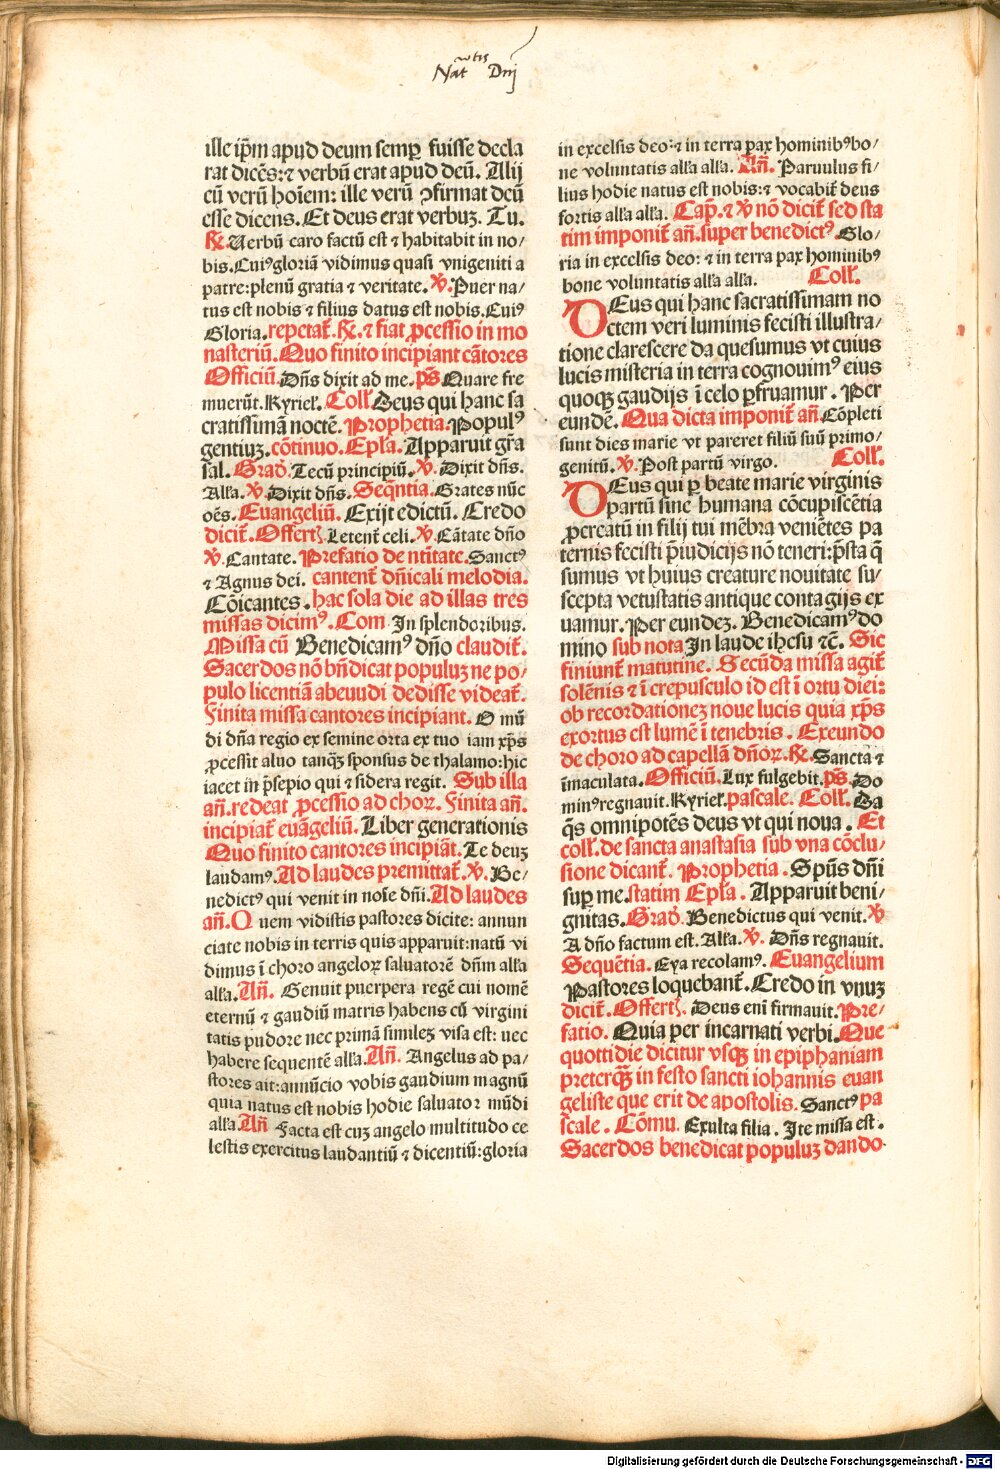 Natiuitatis Dnj
ille ip̄m apud deum semꝑ fuisse decla
rat dicēs:⁊ verbū erat apud deū. Alij
cū verū hoīem: ille verū ꝯfirmat deū
esse dicens. Et deus erat verbuʒ. Tu.
℟. Uerbū caro factū est ⁊ habitabit in no/
bis. Cuiꝰ gloriā vidimus quasi vnigeniti a
patre: plenū gratia ⁊ veritate. ℣. Puer na/
tus est nobis ⁊ filius datus est nobis. Cuiꝰ
Gloria. repetat̄. ℟. ⁊ fiat ꝓcessio in mo
nasteriū. Quo finito incipiant cātores
Officiū. Dn̄s dixit ad me. ps̄ Quare fre
muerūt. Kyriel̄. Coll̄ Deus qui hanc sa
cratissimā noctē. Prophetia. Populꝰ
gentiuʒ. cōtinuo. Ep̄la. Apparuit gr̄a
sal. Grad̄. Tecū principiū. ℣. Dixit dn̄s.
All̄a. ℣. Dixit dn̄s. Seq̄ntia. Grates nūc
oēs. Euangeliū. Exijt edictū. Credo
dicit̄. Offert̄. Letent̄ celi. ℣. Cātate dn̄o
℣. Cantate. Prefatio de nt̄itate. Sanctꝰ
⁊ Agnus dei. cantent̄ dn̄icali melodia.
Cōicantes. hac sola die ad illas tres
missas dicimꝰ. Com In splendoribus.
Missa cū Benedicamꝰ dn̄o claudit̄.
Sacerdos nō bn̄dicat populuʒ ne po/
pulo licentiā abeundi dedisse videat̄.
Finita missa cantores incipiant. O mū
di dn̄a regio ex semine orta ex tuo iam xp̄s
ꝓcessit aluo tanqʒ sponsus de thalamo: hic
iacet in p̄sepio qui ⁊ sidera regit. Sub illa
an̄. redeat ꝓcessio ad choꝝ. Finita an̄.
incipiat̄ euāgeliū. Liber generationis
Quo finito cantores incipiāt. Te deuʒ
laudamꝰ. Ad laudes premittat̄. ℣. Be/
nedictꝰ qui venit in noīe dn̄i. Ad laudes
an̄. Quem vidistis pastores dicite: annun
ciate nobis in terris quis apparuit: natū vi
dimus ī choro angeloꝝ saluatorē dn̄m all̄a
all̄a. An̄. Genuit puerpera regē cui nomē
eternū ⁊ gaudiū matris habens cū virgini
tatis pudore nec primā similēʒ visa est: nec
habere sequentē all̄a. An̄. Angelus ad pa/
stores ait: annūcio vobis gaudium magnū
quia natus est nobis hodie saluator mūdi
all̄a. An̄ Facta est cuʒ angelo multitudo ce
lestis exercitus laudantiū ⁊ dicentiū: gloria
in excelsis deo: ⁊ in terra pax hominibꝰ bo/
ne voluntatis all̄a all̄a. An̄. Paruulus fi/
lius hodie natus est nobis: ⁊ vocabit̄ deus
fortis all̄a all̄a. Cap̄. ⁊ ℣ nō dicit̄ sed sta
tim imponit̄ an̄. super benedictꝰ. Glo/
ria in excelsis deo: ⁊ in terra pax hominibꝰ
bone voluntatis all̄a all̄a. Coll̄.
DEus qui hanc sacratissimam no
ctem veri luminis fecisti illustra/
tione clarescere da quesumus vt cuius
lucis misteria in terra cognouimꝰ eius
quoqʒ gaudijs ī celo ꝑfruamur. Per
eundē. Qua dicta imponit̄ an̄ Cōpleti
sunt dies marie vt pareret filiū suū primo/
genitū. ℣. Post partū virgo. Coll̄.
DEus qui ꝑ beate marie virginis
partū sine humana cōcupiscētia
ꝓcreatū in filij tui mēbra veniētes pa
ternis fecisti p̄iudicijs nō teneri: p̄sta q̄
sumus vt huius creature nouitate su/
scepta vetustatis antique contagijs ex
uamur. Per eundeʒ. Benedicamꝰ do
mino sub nota In laude ih̄esu ⁊c̄. Sic
finiunt̄ matutine. Secūda missa agit̄
solēnis ⁊ ī crepusculo id est ī ortu diei:
ob recordationeʒ noue lucis quia xp̄s
exortus est lumē ī tenebris. Exeundo
de choro ad capellā dn̄oꝝ. ℟. Sancta ⁊
īmaculata. Officiū. Lux fulgebit. ps̄. Do
minꝰ regnauit. Kyriel̄. pascale. Coll̄. Da
q̄s omnipotēs deus vt qui noua. Et
coll̄. de sancta anastasia sub vna cōclu/
sione dicant̄. Prophetia. Spūs dn̄i
suꝑ me. statim Ep̄la. Apparuit beni/
gnitas. Grad̄. Benedictus qui venit. ℣
A dn̄o factum est. All̄a. ℣. Dn̄s regnauit.
Sequētia. Eya recolamꝰ. Euangelium
Pastores loquebant̄. Credo in vnuʒ
dicit̄. Offert̄. Deus enī firmauit. Pre/
fatio. Quia per incarnati verbi. Que
quottidie dicitur vsqʒ in epiphaniam
preterqʒ̄ in festo sancti iohannis euan
geliste que erit de apostolis. Sanctꝰ pa
scale. Cōmu. Exulta filia. Ite missa est.
Sacerdos benedicat populuʒ dando
Digitalisierung gefördert durch die Deutsche Forschungsgemeinschaft - DFG